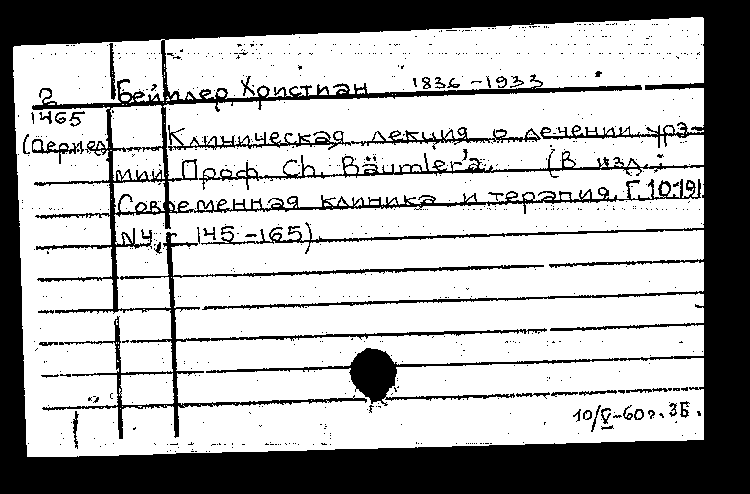 2 Беймлер, Христиан 1836-1933
1465
(период) Клиническая лекция о лечении урэ-
мии Проф. Ch. Bäumler'a. (В изд.:
Современная клиника и терапия, Г. 10.191
N4, с. 145-165).
10/V-60г. ЗБ.